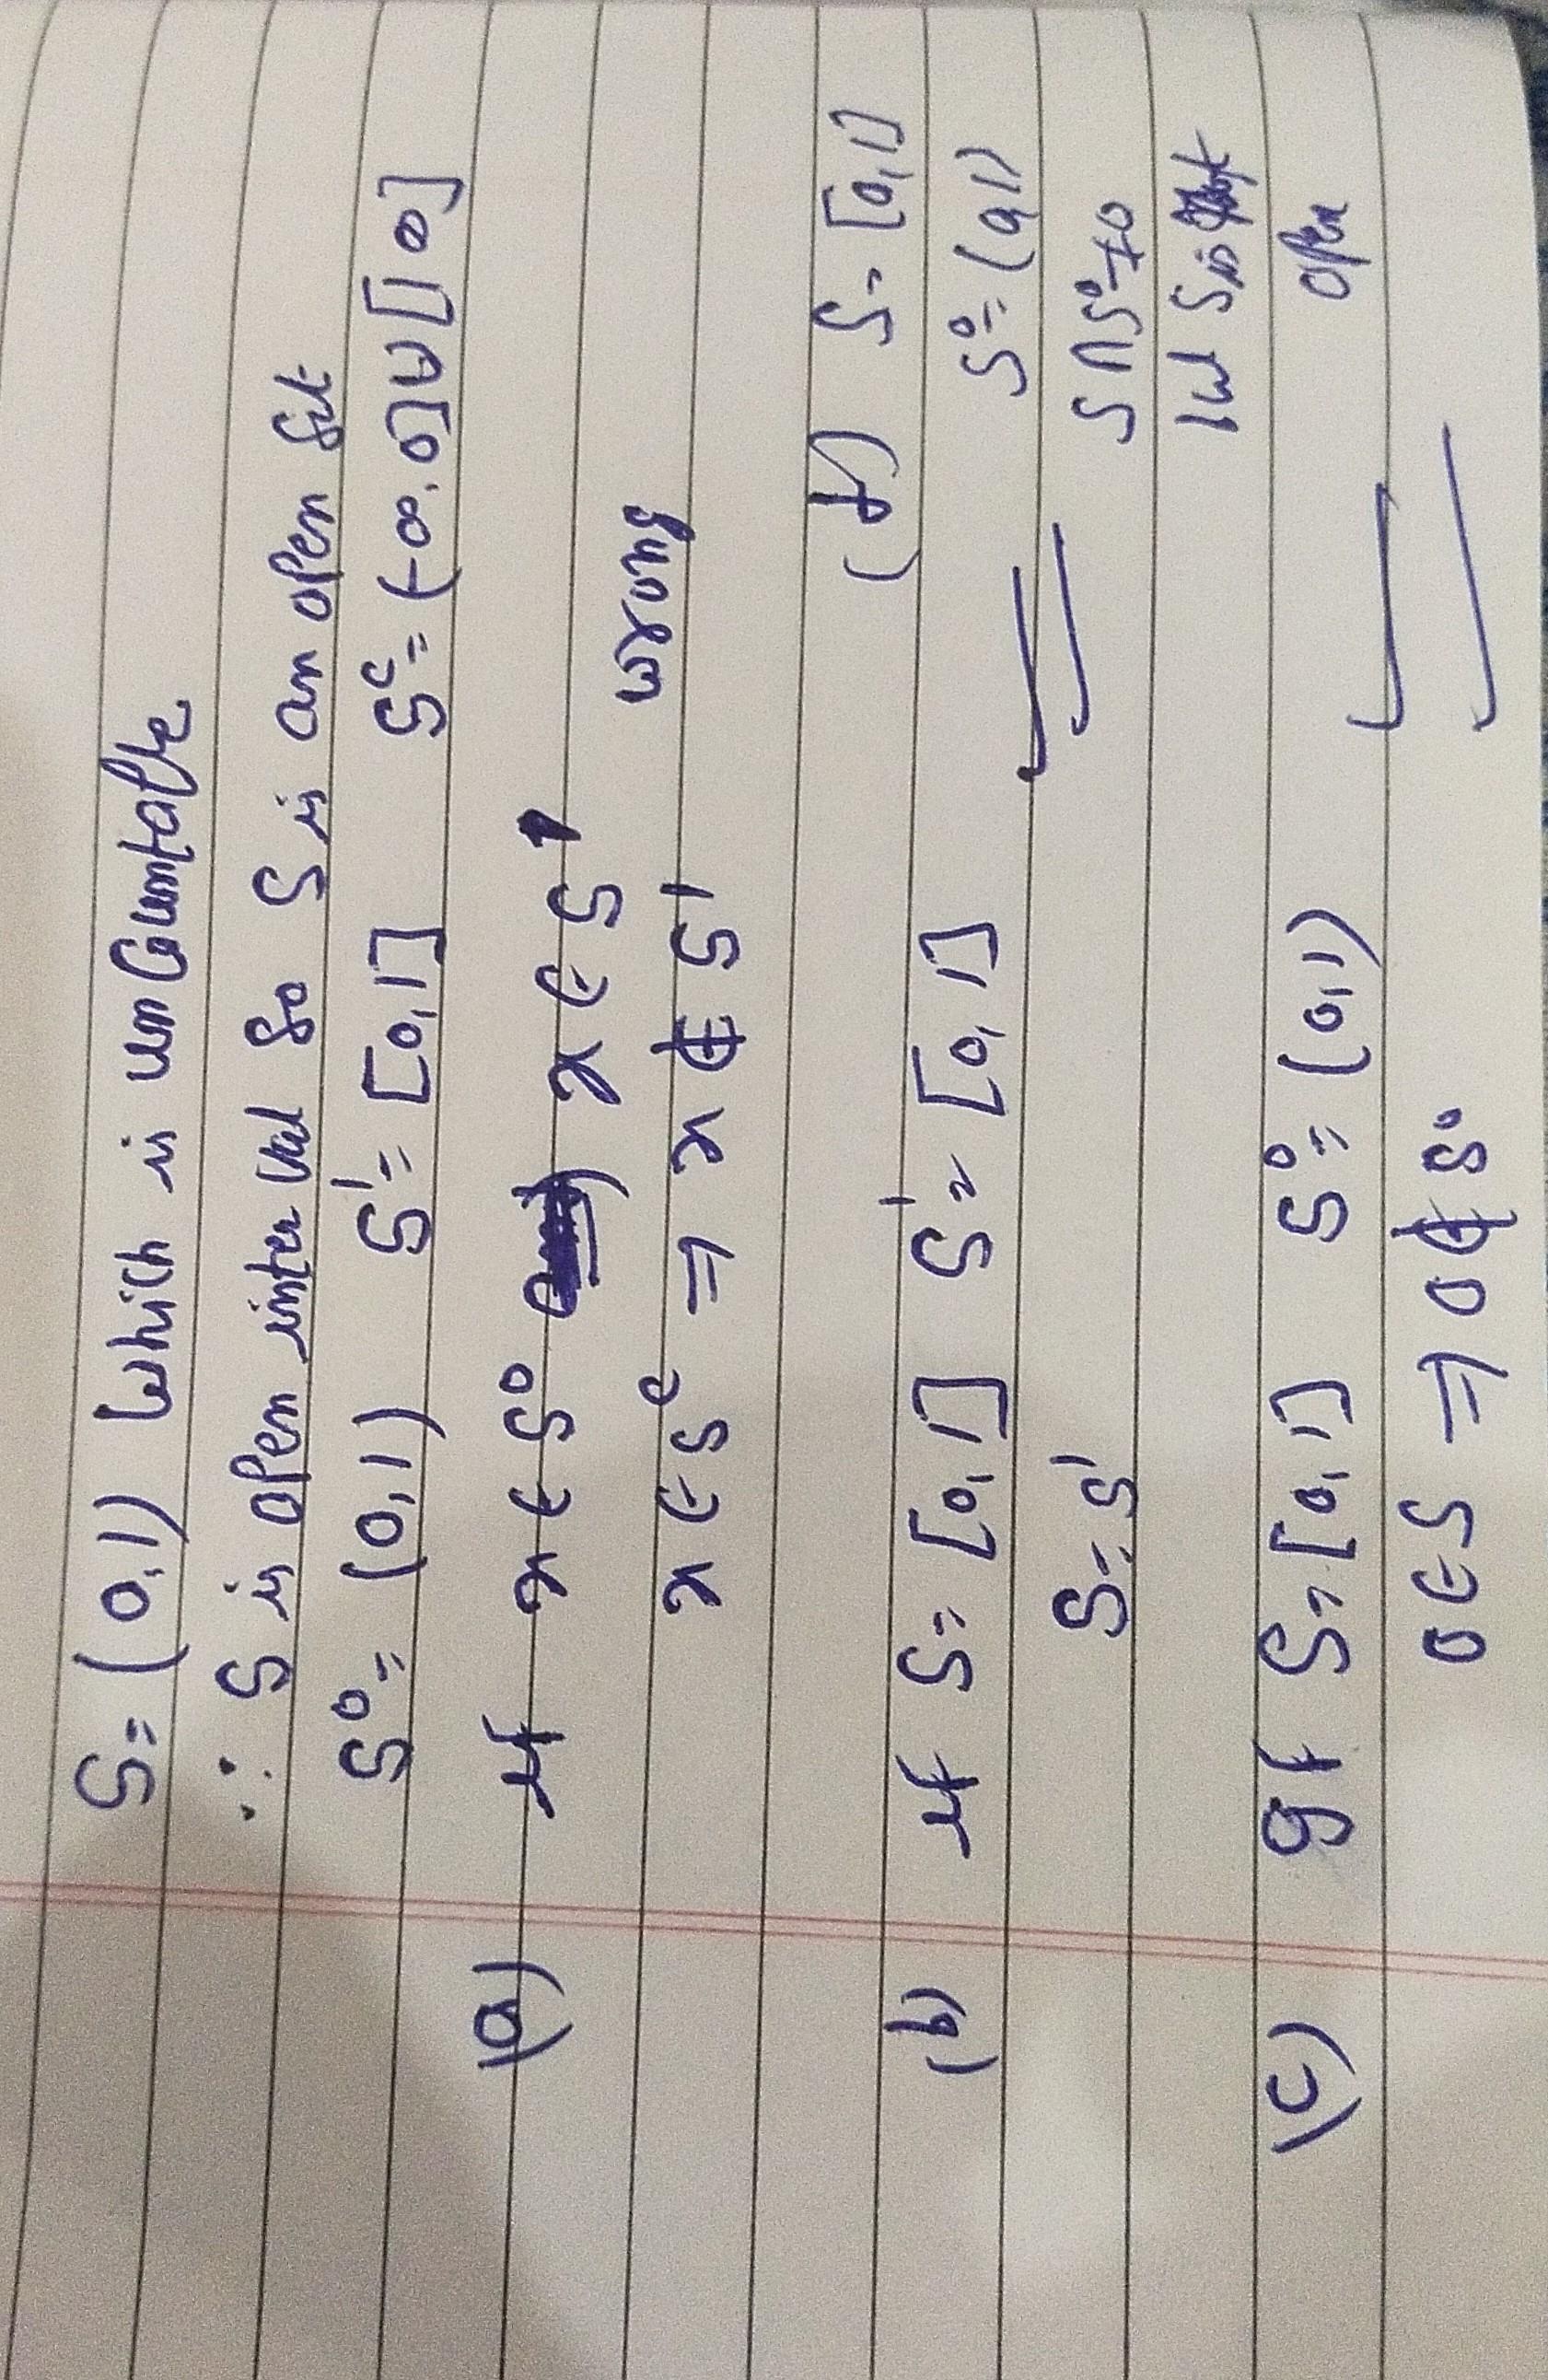 S = (0,1) which is uncountable
∴ S is open interval so S is an open set
S⁰ = (0,1) S' = [0,1] Sᶜ = (-∞,0] ∪ [1 ∞]
(a) If x ∈ S⁰ x ∈ S'
x ∈ Sᶜ ⇒ x ∉ S' wrong
(b) If S = [0,1] S' = [0,1]
S = S'
(c) If S = [0,1] S⁰ = (0,1)
0 ∈ S ⇒ 0 ∉ S⁰
(d) S = [0,1]
S⁰ = (0,1)
S ∩ S⁰ ≠ 0
but S is
open